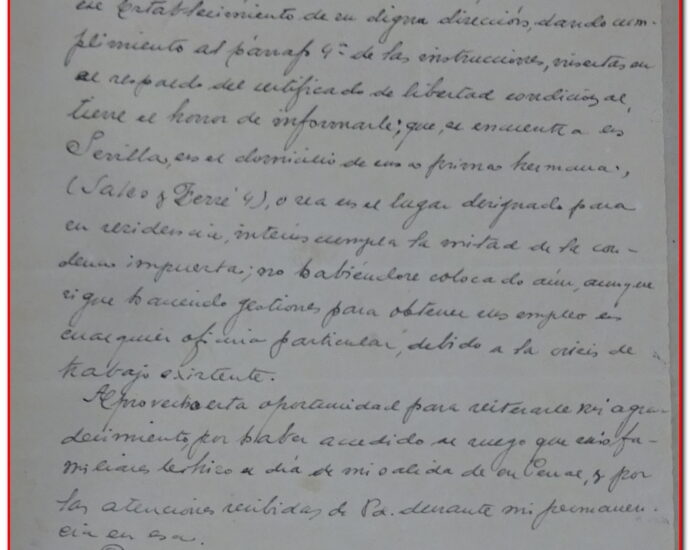 ese Establecimiento de su digna dirección, dando cum-
plimiento al párrafo 4º de las instrucciones, insertas en
el respaldo del certificado de libertad condicional,
tiene el honor de informarle; que, se encuentra en
Sevilla, en el domicilio de una prima hermana,
(Sales y Ferré 4), o sea en el lugar designado para
su residencia, interin cumplea la mitad de la con-
dena impuesta; no habiéndose colocado aún, aunque
sigue haciendo gestiones para obtener un empleo en
cualquier oficina particular, debido a la crisis de
trabajo existente.
Aprovecho esta oportunidad para reiterarle mi agra-
decimiento, por haber accedido al ruego que mis fa-
miliares les hizo el día de mi salida de ese Penal, y por
las atenciones recibidas de Vd. durante mi permanen-
cia en esa.